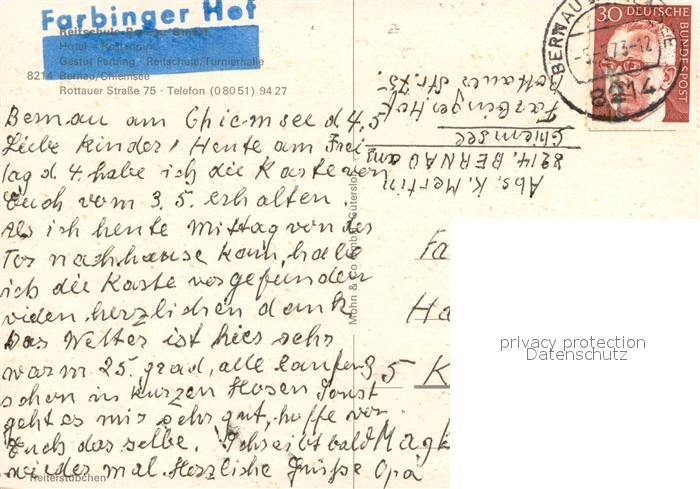 Farbinger Hof
Hotel - Restaurant
Gestüt Farbing · Reitschule, Turnierhalle
8214 Bernau/Chiemsee
Rottauer Straße 75 · Telefon (0 80 51) 94 27
Bernau am Chiemsee d 4,5
Liebe Kinder, Heute am Frei
tag d 4. habe ich die Karte von
Euch vom 3. 5. erhalten.
Als ich heute Mittag von der
Tor nachhause kam, habe
ich die Karte vorgefunden
vielen herzlichen dank
Das Wetter ist hier sehr
warm 25. grad, alle laufen
schon in kurzen Hosen Sonst
geht es mir sehr gut, hoffe von
Euch das selbe. Schreibt bald
wieder mal. Herzliche Grüße Opa
Reiterstübchen
Mohn & Co GmbH Gütersloh
Abs. K. Mertin
8214. BERNAU am
Chiemsee
Farbinger Hof
Rottauer Str. 75.
30 DEUTSCHE
BUNDESPOST
BERNAU
73-12
8214
Fa
Ha
35 K
Magk
privacy protection
Datenschutz